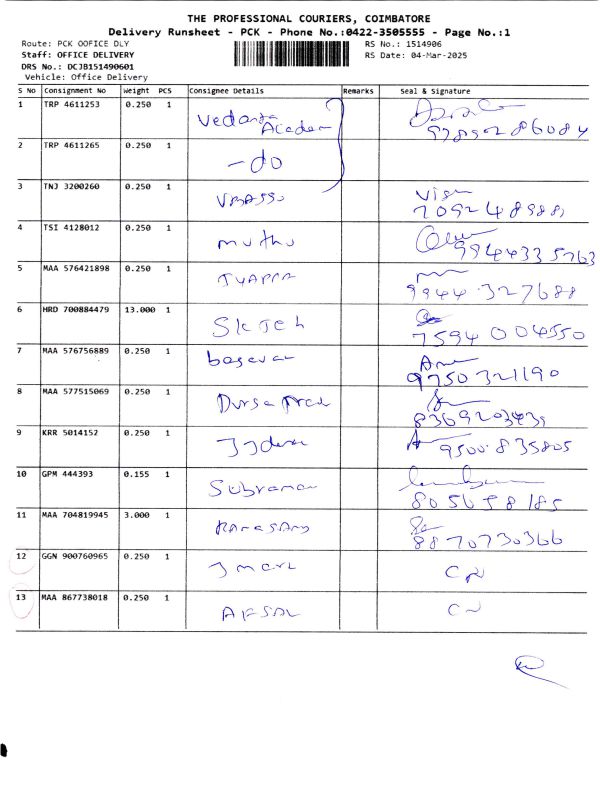 THE PROFESSIONAL COURIERS, COIMBATORE
Delivery Runsheet - PCK - Phone No.:0422-3505555 - Page No.:1
Route: PCK OOFICE DLY RS No.: 1514906
Staff: OFFICE DELIVERY RS Date: 04-Mar-2025
DRS No.: DCJB151490601
Vehicle: Office Delivery
S No Consignment No Weight PCS Consignee Details Remarks Seal & Signature
1 TRP 4611253 0.250 1 Vedanta
97892 86084
2 TRP 4611265 0.250 1 -do
3 TNJ 3200260 0.250 1
4 TSI 4128012 0.250 1 muthu
9944335763
5 MAA 576421898 0.250 1
9944 327688
6 HRD 700884479 13.000 1 Sketch
7594 004550
7 MAA 576756889 0.250 1
9750321190
8 MAA 577515069 0.250 1
9 KRR 5014152 0.250 1 9500 835805
10 GPM 444393 0.155 1 Subraman
11 MAA 704819945 3.000 1
8870730366
12 GGN 900760965 0.250 1
13 MAA 867738018 0.250 1 AFSAL